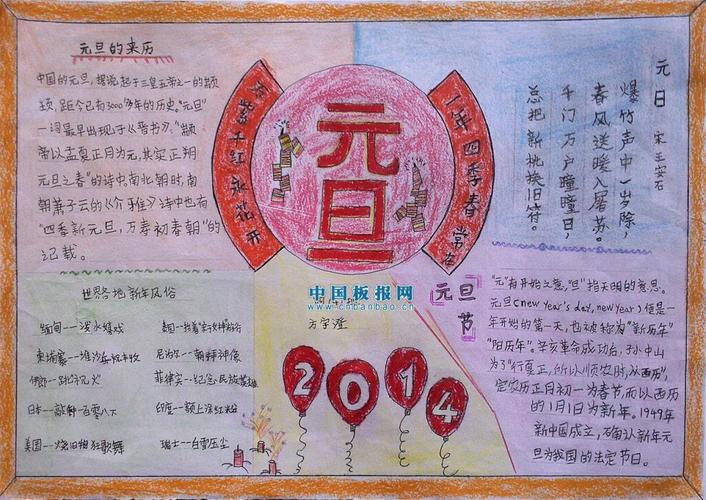 元旦的来历
中国的元旦，据说起于三皇五帝之一的颛
顼，距今已有3000多年的历史。"元旦"
一词最早出现于《晋书》。"颛
帝以孟夏正月为元，其实正朔
元旦之春"的诗中。南北朝时，南
朝萧子云的《介雅》诗中也有
"四季新元旦，万寿初春朝"的
记载。
万紫千红永花开
元旦
一年四季春常在
元日
宋 王安石
爆竹声中一岁除，
春风送暖入屠苏。
千门万户曈曈日，
总把新桃换旧符。
世界各地新年风俗
缅甸--泼水嬉戏
柬埔寨--堆沙乐祝丰收
伊朗--跳浴元火
日本--敲钟一百零八下
美国--烧旧柏狂歌舞
尼泊尔--朝拜神像
菲律宾--纪念民族英雄
印度--额上涂红粉
瑞士--白雪压尘
中国板报网
www.cnbanbao.cn
方宇澄
2014
元旦
节
"元"有开始之意，"旦"指天明的意思。
元旦(new year's day, new year)便是一
年开始的第一天，也被称为"新历年"
"阳历年"。辛亥革命成功后，孙中山
为了"行夏正，所以顺农时，从西历"，
定农历正月初一为春节，而以西历
的1月1日为新年。1949年
新中国成立，确认新年元
旦为我国的法定节日。